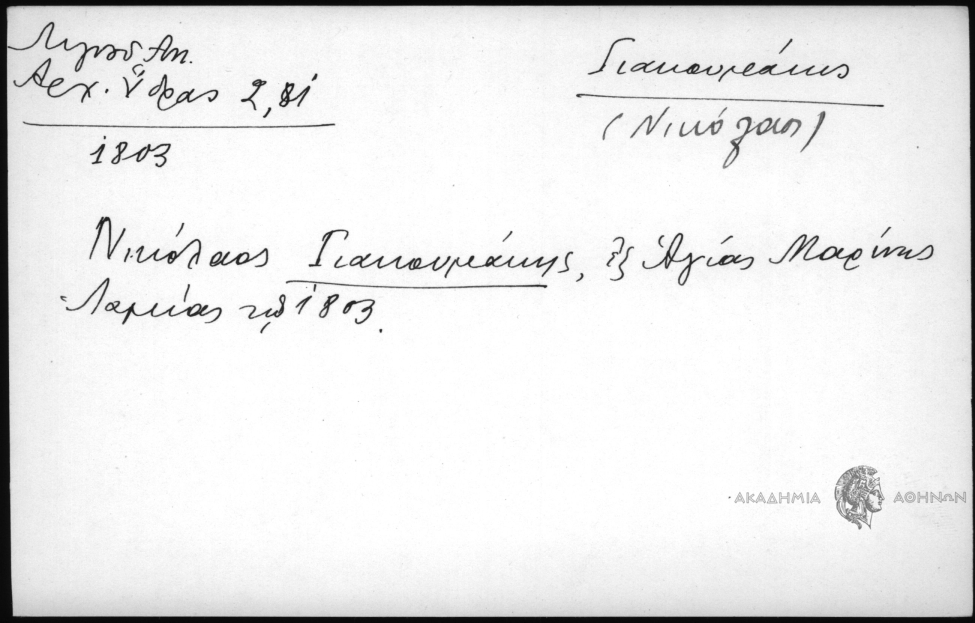 Λιγνοῦ Ἀν.
Ἀρχ. Ὕδρας 2,81
1803
Γιακουμάκης
(Νικόλαος)
Νικόλαος Γιακουμάκης, ἐξ Ἁγίας Μαρίνης
Λαμίας τῷ 1803.
ΑΚΑΔΗΜΙΑ ΑΘΗΝΩΝ